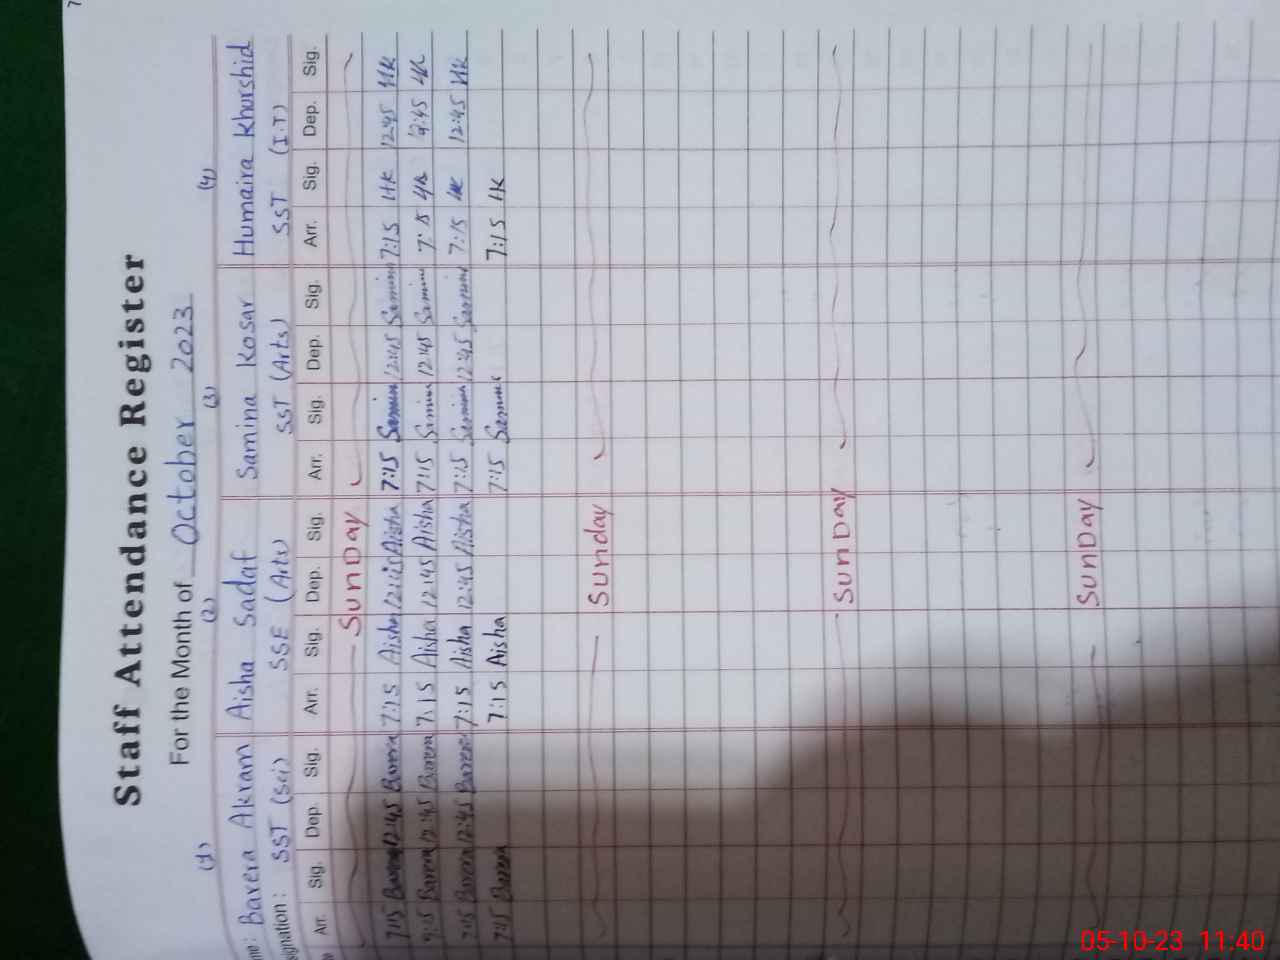 Staff Attendance Register
For the Month of October 2023
(1) (2) (3) (4)
Barera Akram Aisha Sadaf Samina Kosar Humaira Khurshid
signation: SST (Sci) SSE (Arts) SST (Arts) SST (I.T)
Arr. Sig. Dep. Sig. Arr. Sig. Dep. Sig. Arr. Sig. Dep. Sig. Arr. Sig. Dep. Sig.
SunDay
7:15 Barera 12:45 Barera 7:15 Aisha 12:45 Aisha 7:15 Samina 12:45 Samina 7:15 HK 12:45 HK
7:15 Barera 12:45 Barera 7:15 Aisha 12:45 Aisha 7:15 Samina 12:45 Samina 7:15 HK 12:45 HK
7:15 Barera 12:45 Barera 7:15 Aisha 12:45 Aisha 7:15 Samina 12:45 Samina 7:15 HK 12:45 HK
7:15 Barera 7:15 Aisha 7:15 Samina 7:15 HK
Sunday
SunDay
SunDay
05-10-23 11:40